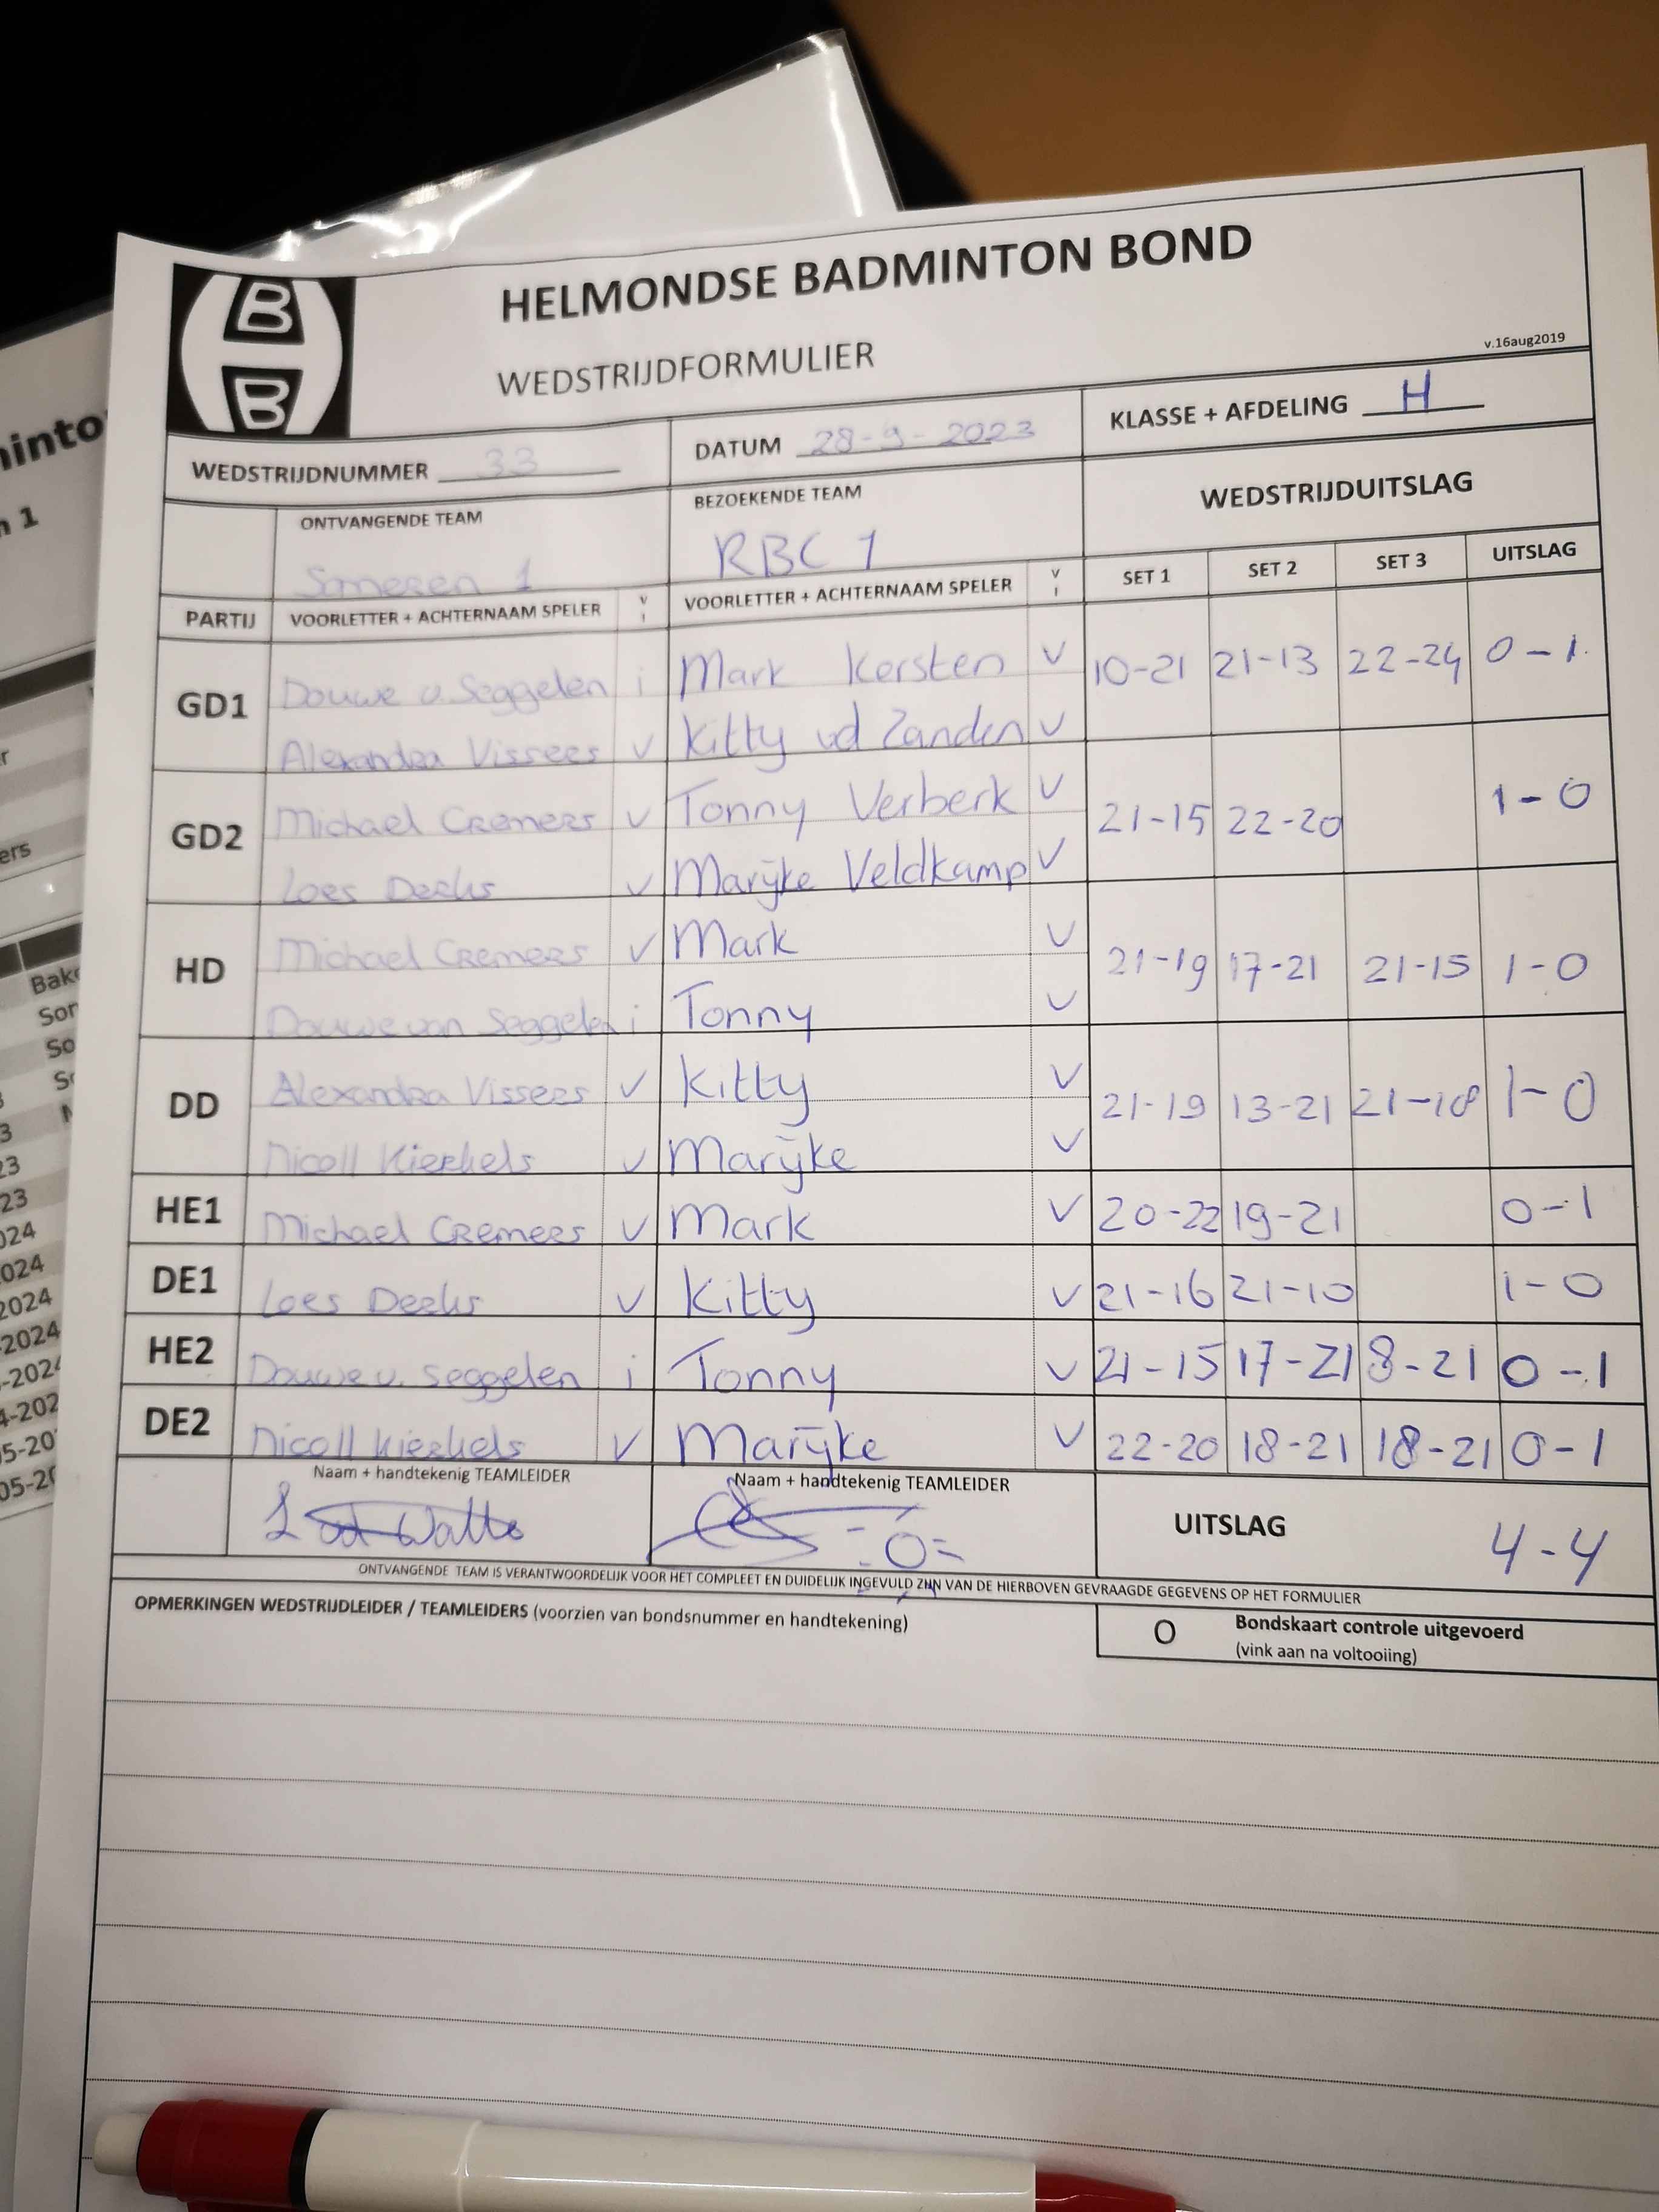 HELMONDSE BADMINTON BOND
WEDSTRIJDFORMULIER
v.16aug2019
B
B
WEDSTRIJDNUMMER 33
DATUM 28-9-2023
KLASSE + AFDELING H
ONTVANGENDE TEAM
Someren 1
BEZOEKENDE TEAM
RBC 1
WEDSTRIJDUITSLAG
PARTIJ VOORLETTER + ACHTERNAAM SPELER V I VOORLETTER + ACHTERNAAM SPELER V I SET 1 SET 2 SET 3 UITSLAG
GD1 Douwe v. Seggelen i Mark Kersten V 10-21 21-13 22-24 0-1
Alexandra Vissers V Kitty vd Zanden V
GD2 Michael Cremers V Tonny Verberk V 21-15 22-20 1-0
Loes Derks V Marijke Veldkamp V
HD Michael Cremers V Mark V 21-19 17-21 21-15 1-0
Douwe van Seggelen i Tonny V
DD Alexandra Vissers V Kitty V 21-19 13-21 21-18 1-0
Nicoll Kierkels V Marijke V
HE1 Michael Cremers V Mark V 20-22 19-21 0-1
DE1 Loes Derks V Kitty V 21-16 21-10 1-0
HE2 Douwe v. Seggelen i Tonny V 21-15 17-21 8-21 0-1
DE2 Nicoll Kierkels V Marijke V 22-20 18-21 18-21 0-1
Naam + handtekenig TEAMLEIDER
Naam + handtekenig TEAMLEIDER
UITSLAG 4-4
ONTVANGENDE TEAM IS VERANTWOORDELIJK VOOR HET COMPLEET EN DUIDELIJK INGEVULD ZIJN VAN DE HIERBOVEN GEVRAAGDE GEGEVENS OP HET FORMULIER
OPMERKINGEN WEDSTRIJDLEIDER / TEAMLEIDERS (voorzien van bondsnummer en handtekening)
O Bondskaart controle uitgevoerd
(vink aan na voltooiing)